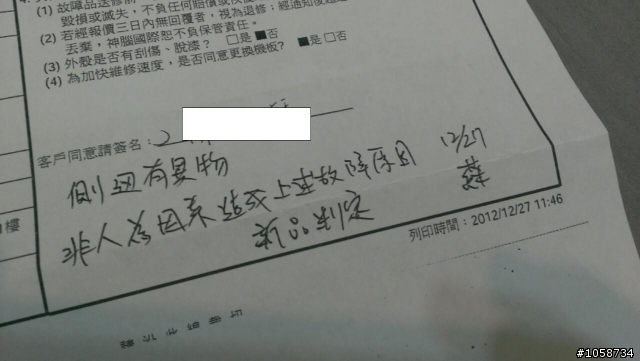 (1) 故障品送修前
毀損或滅失，不負任何賠償或
(2) 若經報價三日內無回覆者，視為退修；經通知後
丟棄，神腦國際恕不負保管責任。
(3) 外殼是否有刮傷、脫漆？ □是■否
(4) 為加快維修速度，是否同意更換機板？ ■是□否
客戶同意請簽名：
側鈕有異物 12/27
非人為因素造成上述故障原因
新品判定
列印時間：2012/12/27 11:46
樓
#1058734